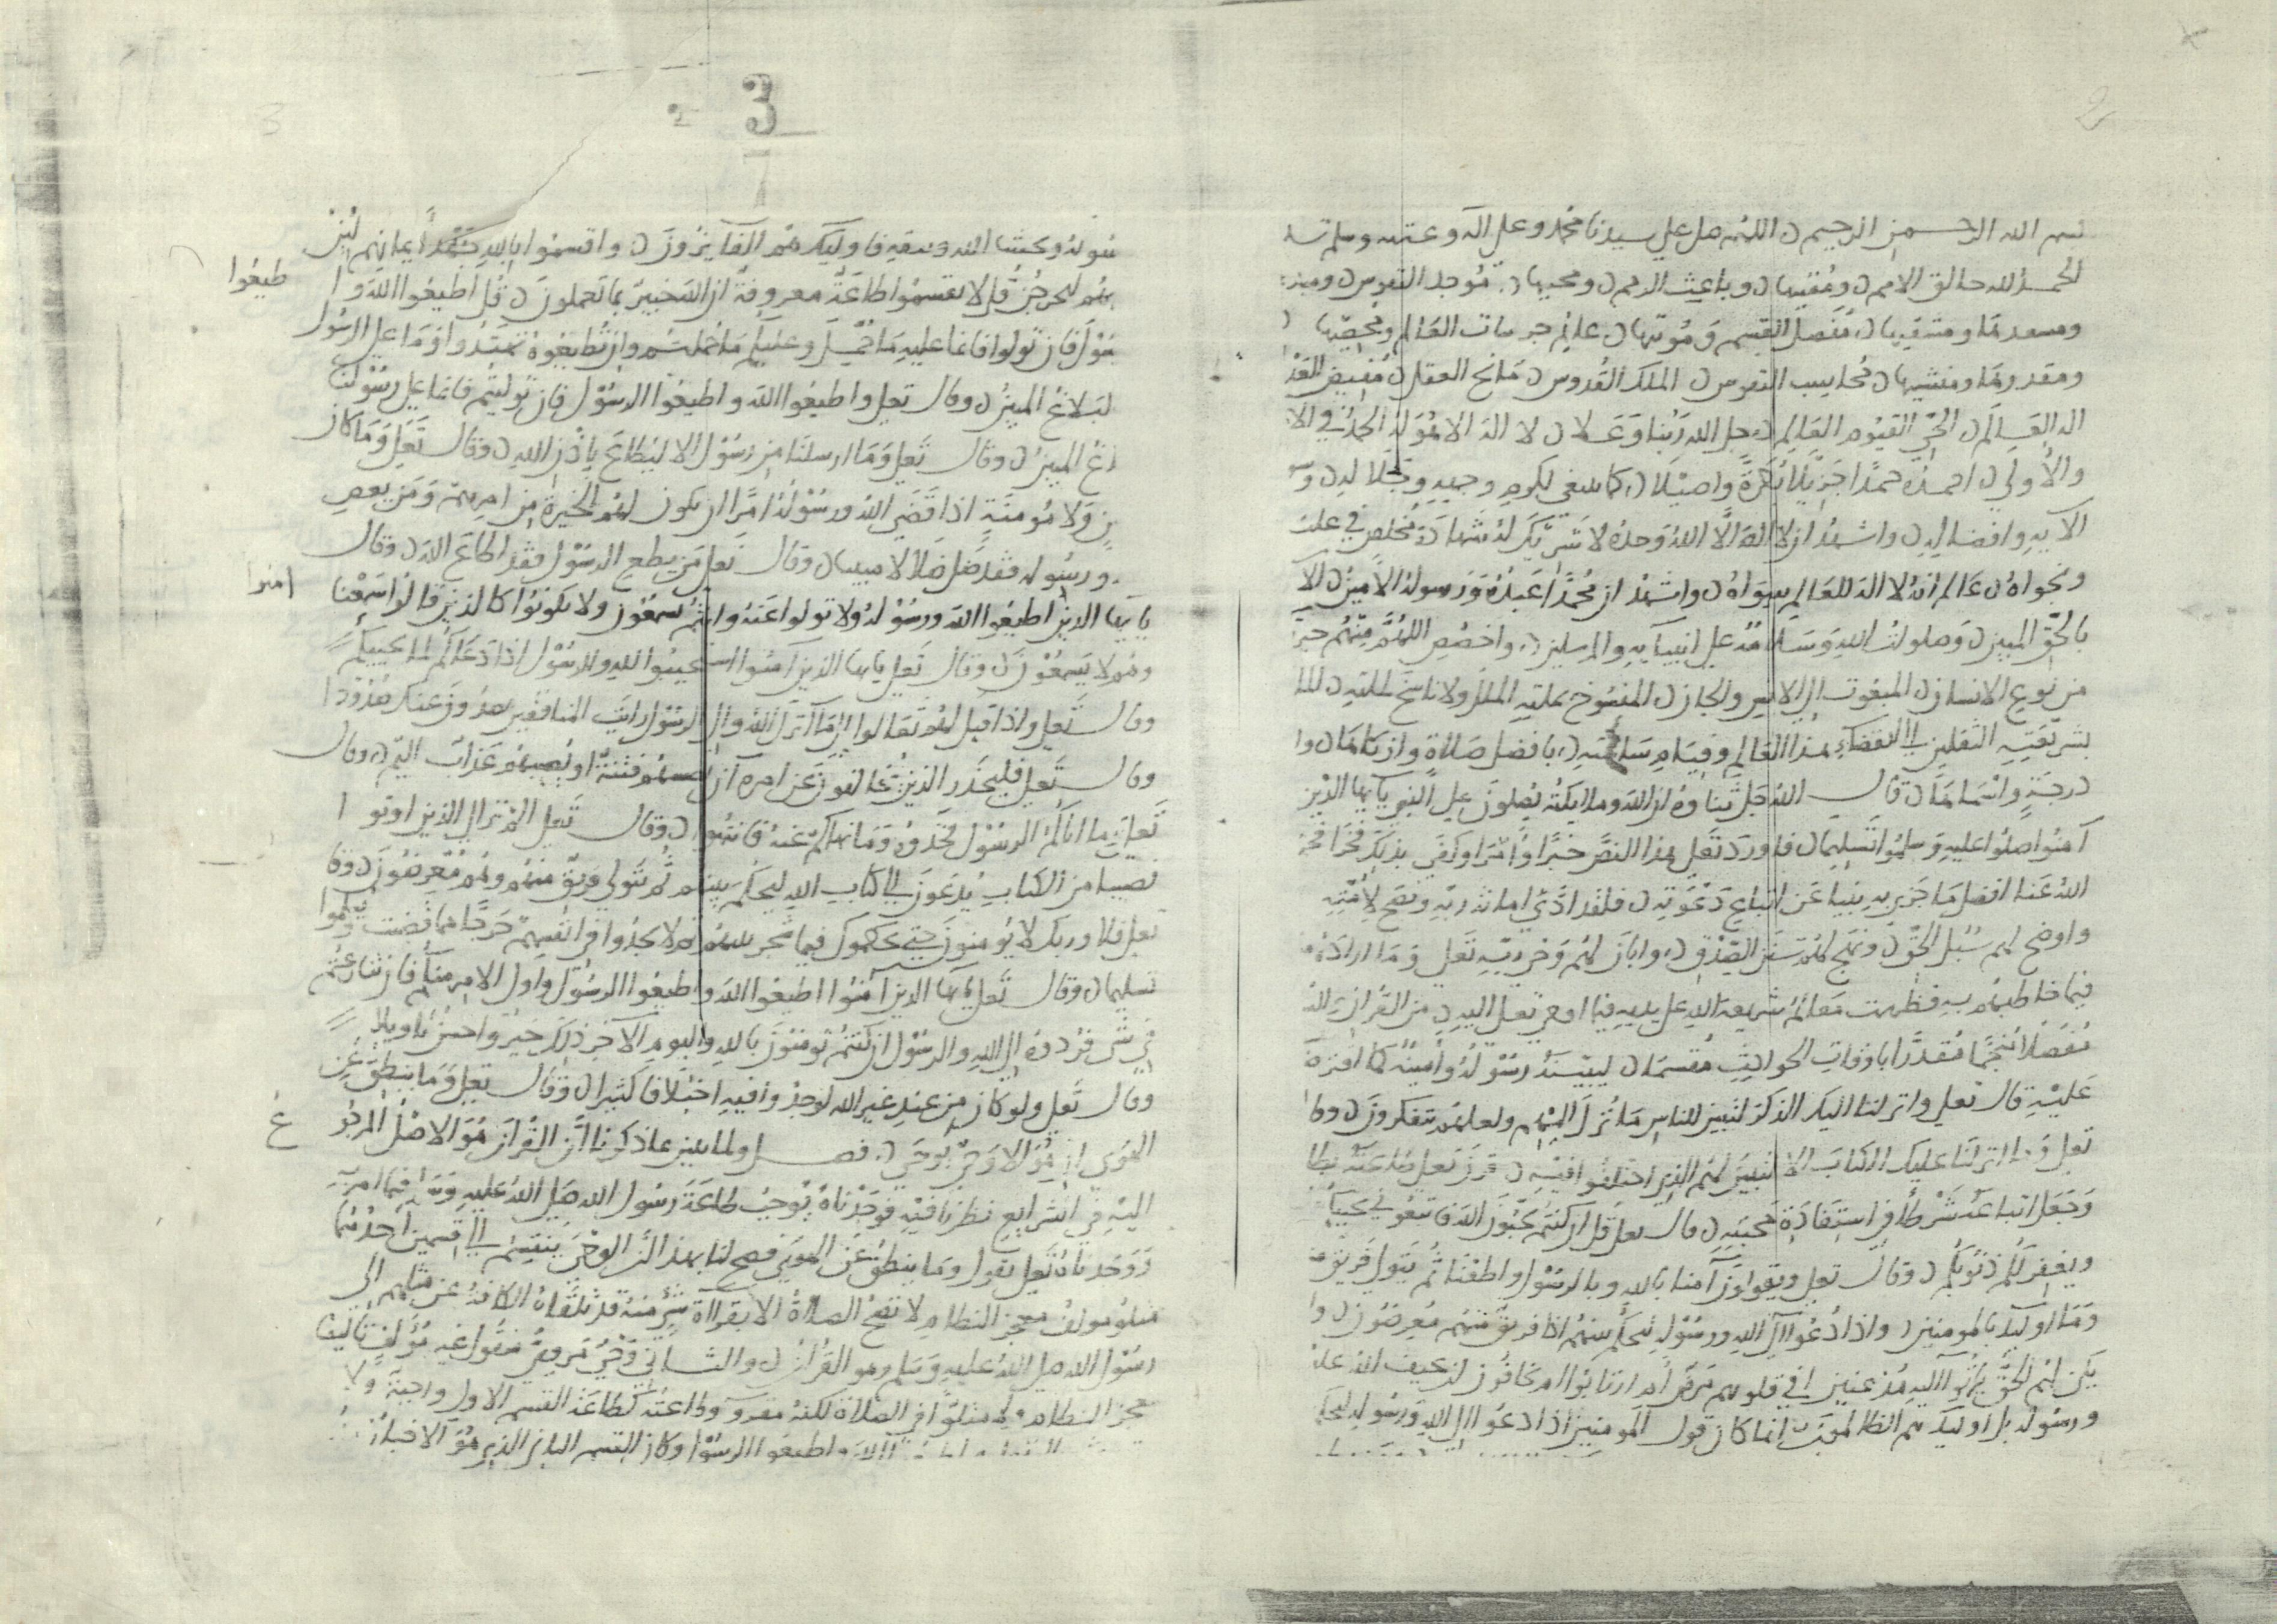 بسم الله الرحمن الرحيم اللهم صل على سيدنا محمد وعلى اله وعترته وسلم
الحمد لله خالق الامم ومفنيها وباعث الرمم ومحييها موجد النفوس
ومسعدها ومشقيها مفصل القسم ومؤتيها عالم جزئيات العالم ومحصيها
ومقدرها ومنشيها محاسب النفوس الملك القدوس مانح العقل مفيض العدل
اله العالم الحي القيوم العالم جل الله ربنا وعلا لا اله الا هو له الحمد في الا
والأولى احمده حمدا جزيلا بكرة واصيلا كما ينبغي لكرم وجهه وجلاله و
الايه وافضاله واشهد ان لا اله الا الله وحده لا شريك له شهادة مخلص في علنه
ونجواه عالم انه لا اله للعالم سواه واشهد ان محمدا عبده ورسوله الامين الا
بالحق المبين وصلوات الله وسلامه على انبيآيه والمرسلين واخصص اللهم منهم خير
من نوع الانسان المبعوث الى الانس والجان المنسوخ بملته الملل ولا ناسخ لملته
بشريعته الثقلين الى انقضاء هذا العالم وقيام ساعته بافضل صلاة وازكاها وا
درجة واسماها قال الله جل ثناوه ان الله وملايكته يصلون على النبي يآيها الذين
آمنوا صلوا عليه وسلموا تسليما فاورد تعلى هذا النص خبرا وامرا وكفى بذلك فخرا
الله عنا افضل ما جزى به نبيا عن اتباع دعوته فلقد ادى امانة ربه ونصح لامته
واوضح لهم سبل الحق ونهج لهم سنن الصدق وابان لهم وحي ربه تعلى وما اراده
فيما خاطبهم به فظهرت معالم شريعة الله على يديه فيما اوحى تعلى اليه من القرآن
مفصلا منجما مقدرا باوقات الحوادث مقسما ليبينه رسوله وأمينه كما افترض
عليه قال تعلى وانزلنا اليك الذكر لتبين للناس ما نزل اليهم ولعلهم يتفكرون وقال
تعلى وما انزلنا عليك الكتاب الا لتبين لهم الذي اختلفوا فيه قرن تعلى طاعته بطا
وجعل اتباعه شرطا في استفادة محبته قال تعلى قل ان كنتم تحبون الله فاتبعوني يحببكم
ويغفر لكم ذنوبكم وقال تعلى ويقولون آمنا بالله وبالرسول واطعنا ثم يتولى فريق من
وما اوليك بالمومنين واذا دعوا الى الله ورسوله ليحكم بينهم اذا فريق منهم معرضون وا
يكن لهم الحق ياتوا اليه مذعنين افي قلوبهم مرض أم ارتابوا ام يخافون ان يحيف الله عليه
ورسوله بل اوليك هم الظالمون انما كان قول المومنين اذا دعوا الى الله ورسوله ليحكم
3
سوله ويخشى الله ويتقه فاوليك هم الفايزون واقسموا بالله جهد ايمانهم لئن
تهم ليخرجن قل لا تقسموا طاعة معروفة ان الله خبير بما تعملون قل اطيعوا الله وا
طيعوا
سول فان تولوا فانما عليه ما حمل وعليكم ما حملتم وان تطيعوه تهتدوا وما على الرسول
البلاغ المبين وقال تعلى واطيعوا الله واطيعوا الرسول فان توليتم فانما على رسولنا
لاغ المبين وقال تعلى وما ارسلنا من رسول الا ليطاع باذن الله وقال تعلى وما كان
من ولا مومنة اذا قضى الله ورسوله امرا ان يكون لهم الخيرة من امرهم ومن يعص
ورسوله فقد ضل ضلالا مبينا وقال تعلى من يطع الرسول فقد اطاع الله وقال
يا يها الذين اطيعوا الله ورسوله ولا تولوا عنه وانتم تسمعون ولا تكونوا كالذين قالوا سمعنا
امنوا
وهم لا يسمعون وقال تعلى يايها الذين آمنوا استجيبوا لله وللرسول اذا دعاكم لما يحييكم
وقال تعلى واذا قيل لهم تعالوا الى ما انزل الله والى الرسول رايت المنافقين يصدون عنك صدودا
وقال تعلى فليحذر الذين يخالفون عن امره ان تصيبهم فتنة او يصيبهم عذاب اليم وقال
تعلى وما اتاكم الرسول فخذوه وما نهاكم عنه فانتهوا وقال تعلى الم تر الى الذين اوتوا
نصيبا من الكتاب يدعون الى كتاب الله ليحكم بينهم ثم يتولى فريق منهم وهم معرضون وقا
تعلى فلا وربك لا يومنون حتى يحكموك فيما شجر بينهم ثم لا يجدوا في انفسهم حرجا مما قضيت ويسلموا
تسليما وقال تعلى يايها الذين آمنوا اطيعوا الله واطيعوا الرسول واولى الامر منكم فان تنازعتم
في شي فردوه الى الله والرسول ان كنتم تومنون بالله واليوم الآخر ذلك خير واحسن تاويلا
وقال تعلى ولو كان من عند غير الله لوجدوا فيه اختلافا كثيرا وقال تعلى وما ينطق عن
الهوى ان هو الا وحي يوحى فصل ولما تبين بما ذكرنا أن القرآن هو الاصل المرجو
ع
اليه في الشرايع نظرنا فيه فوجدناه يوجب طاعة رسول الله صلى الله عليه وسلم فيما امر به
ووجدناه تعلى يقول وما ينطق عن الهوى فصح لنا بهذا أن الوحي ينقسم الى قسمين احدهما
متلو مولف معجز النظام لا تصح الصلاة الا بقراة شي منه قد تلقاه الكافة عن مثلهم الى
رسول الله صلى الله عليه وسلم وهو القران والثاني وحي مروي منقول غير مؤلف تاليفا
معجز النظام ولا متلوا في الصلاة لكنه مقرو وطاعته كطاعة القسم الاول واجبة ولا
واطيعوا الرسول وكان القسم الثاني الذي هو الاخبار